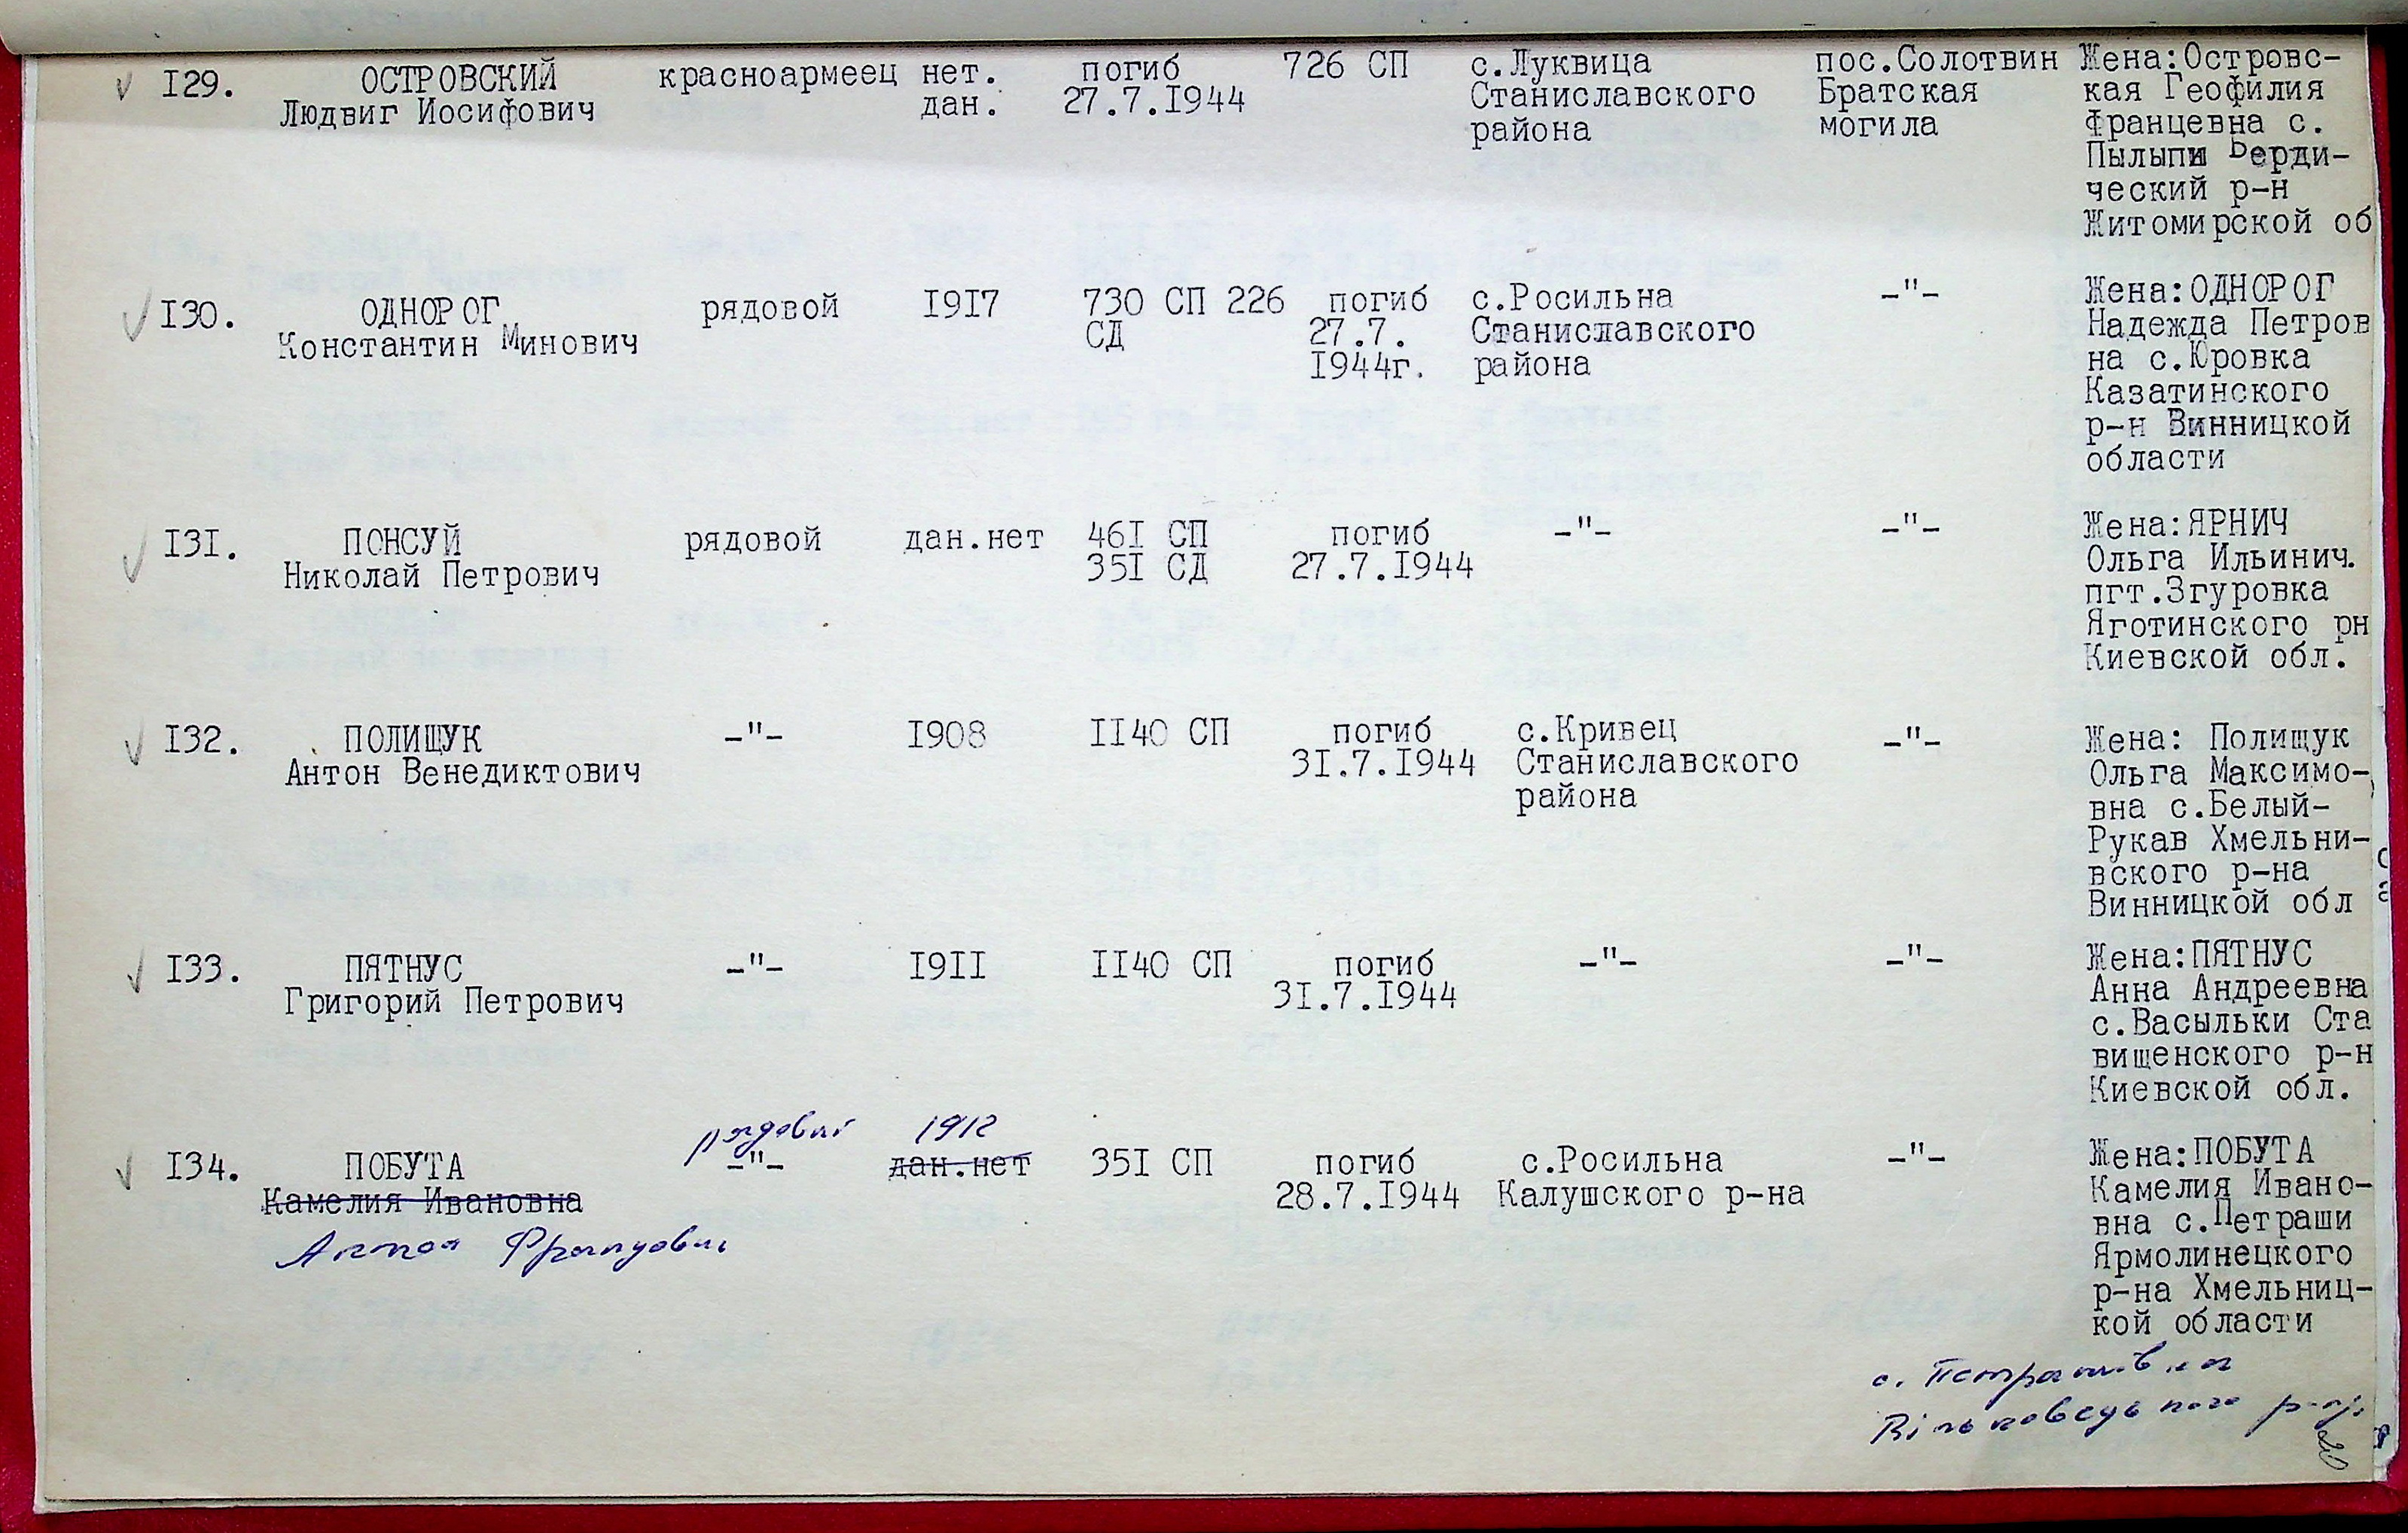 I29. ОСТРОВСКИЙ красноармеец нет. погиб 726 СП с.Луквица пос.Солотвин Жена:Островс-
Людвиг Иосифович дан. 27.7.I944 Станиславского Братская кая Геофилия
района могила Францевна с.
Пылыпи Берди-
ческий р-н
Житомирской об
I30. ОДНОРОГ рядовой I9I7 730 СП 226 погиб с.Росильна -"- Жена:ОДНОРОГ
Константин Минович СД 27.7. Станиславского Надежда Петров
I944г. района на с.Юровка
Казатинского
р-н Винницкой
области
I3I. ПОНСУЙ рядовой дан.нет 46I СП погиб -"- -"- Жена:ЯРНИЧ
Николай Петрович 35I СД 27.7.I944 Ольга Ильинич.
пгт.Згуровка
Яготинского рн
Киевской обл.
I32. ПОЛИЩУК -"- I908 II40 СП погиб с.Кривец -"- Жена: Полищук
Антон Венедиктович 3I.7.I944 Станиславского Ольга Максимо-
района вна с.Белый-
Рукав Хмельни-
вского р-на
Винницкой обл
I33. ПЯТНУС -"- I9II II40 СП погиб -"- -"- Жена:ПЯТНУС
Григорий Петрович 3I.7.I944 Анна Андреевна
с.Васыльки Ста
вищенского р-н
Киевской обл.
рядовий 1912
I34. ПОБУТА -"- дан.нет 35I СП погиб с.Росильна -"- Жена:ПОБУТА
Камелия Ивановна 28.7.I944 Калушского р-на Камелия Ивано-
Антон вна с.Петраши
Ярмолинецкого
р-на Хмельниц-
кой области
с. Петрашівка
р-ну